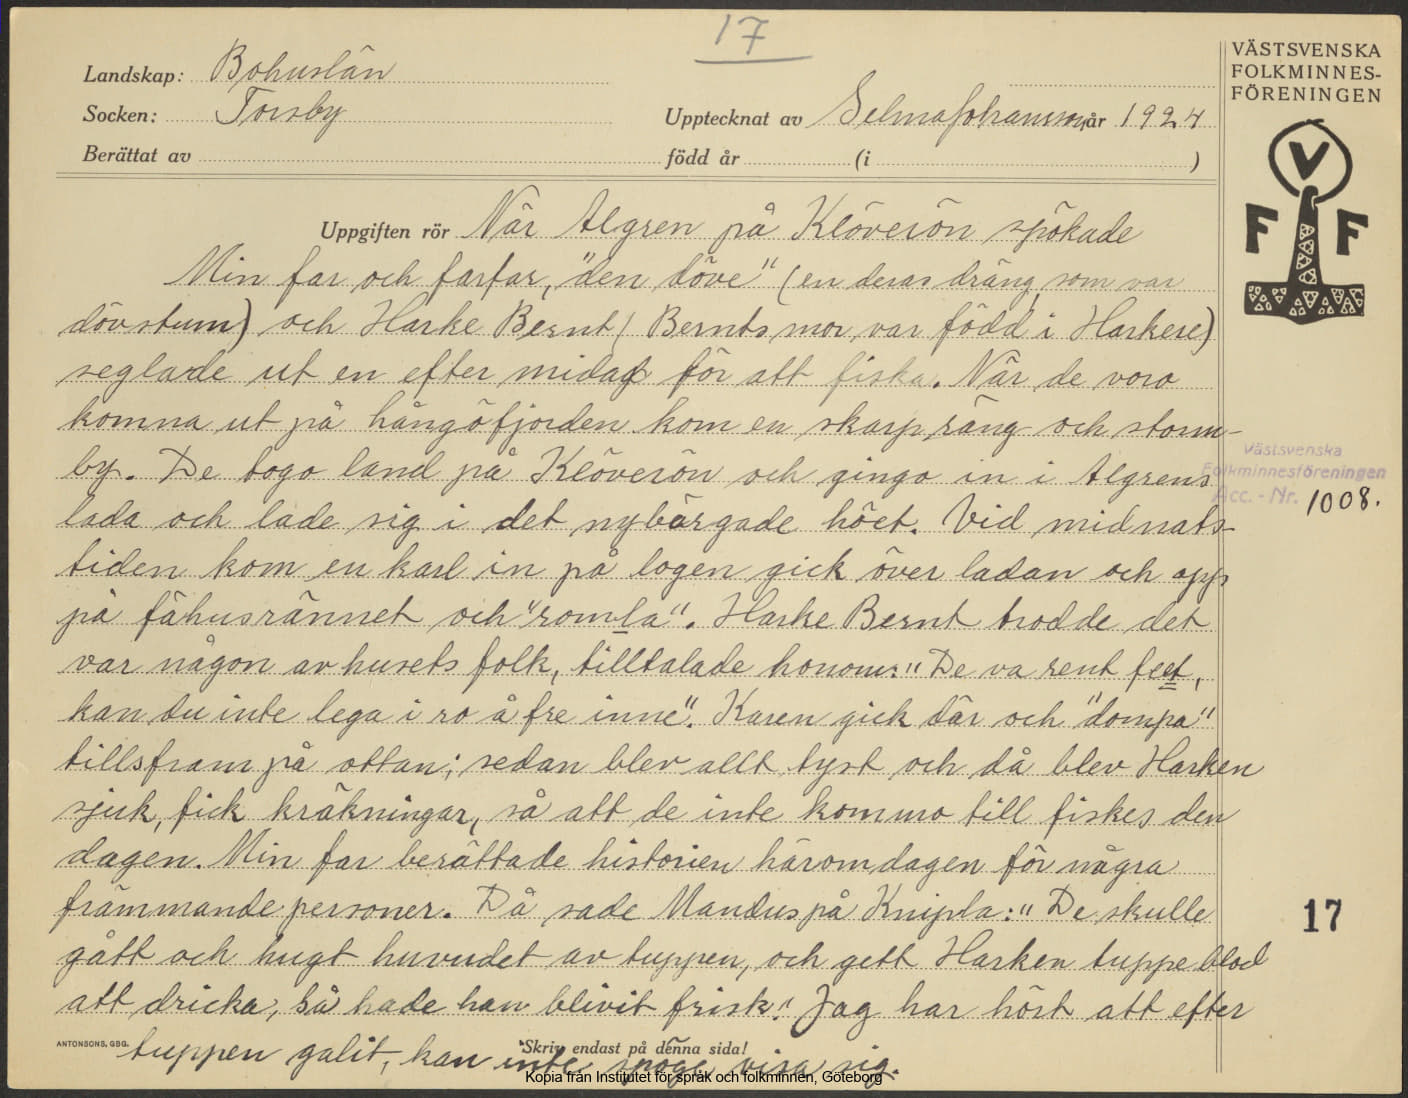 17
Landskap: Bohuslän
Socken: Torsby
Upptecknat av Selma Johansson, år 1924
Berättat av
född år (i )
VÄSTSVENSKA
FOLKMINNES-
FÖRENINGEN
V
F F
Uppgiften rör När Algren på Klöverön spökade
Min far och farfar, "den döve" (en deras dräng, som var
dövstum) och Harke Bernt (Bernts mor var född i Harkere)
seglade ut en efter midag för att fiska. När de voro
komna ut på hångöfjorden kom en skarp räng och storm-
by. De togo land på Klöverön och gingo in i Algrens
lada och lade sig i det nybärgade höet. Vid midnats-
tiden kom en karl in på logen gick över ladan och opp
på fähusrännet och "romla". Harke Bernt trodde det
var någon av husets folk, tilltalade honom: "De va rent feet,
kan du inte lega i ro å fre inne". Karen gick där och "dompa"
tillsfram på ottan; sedan blev allt tyst och då blev Harken
sjuk, fick kräkningar, så att de inte kommo till fiskes den
dagen. Min far berättade historien häromdagen för några
främmande personer. Då sade Mandus på Knipla: "De skulle
gått och hugt huvudet av tuppen, och gett Harken tuppeblod
att dricka, så hade han blivit frisk! Jag har hört att efter
tuppen galit, kan inte spöge visa sig.
Västsvenska
Folkminnesföreningen
Acc.-Nr. 1008.
17
ANTONSONS, GBG.
Skriv endast på denna sida!
Kopia från Institutet för språk och folkminnen, Göteborg